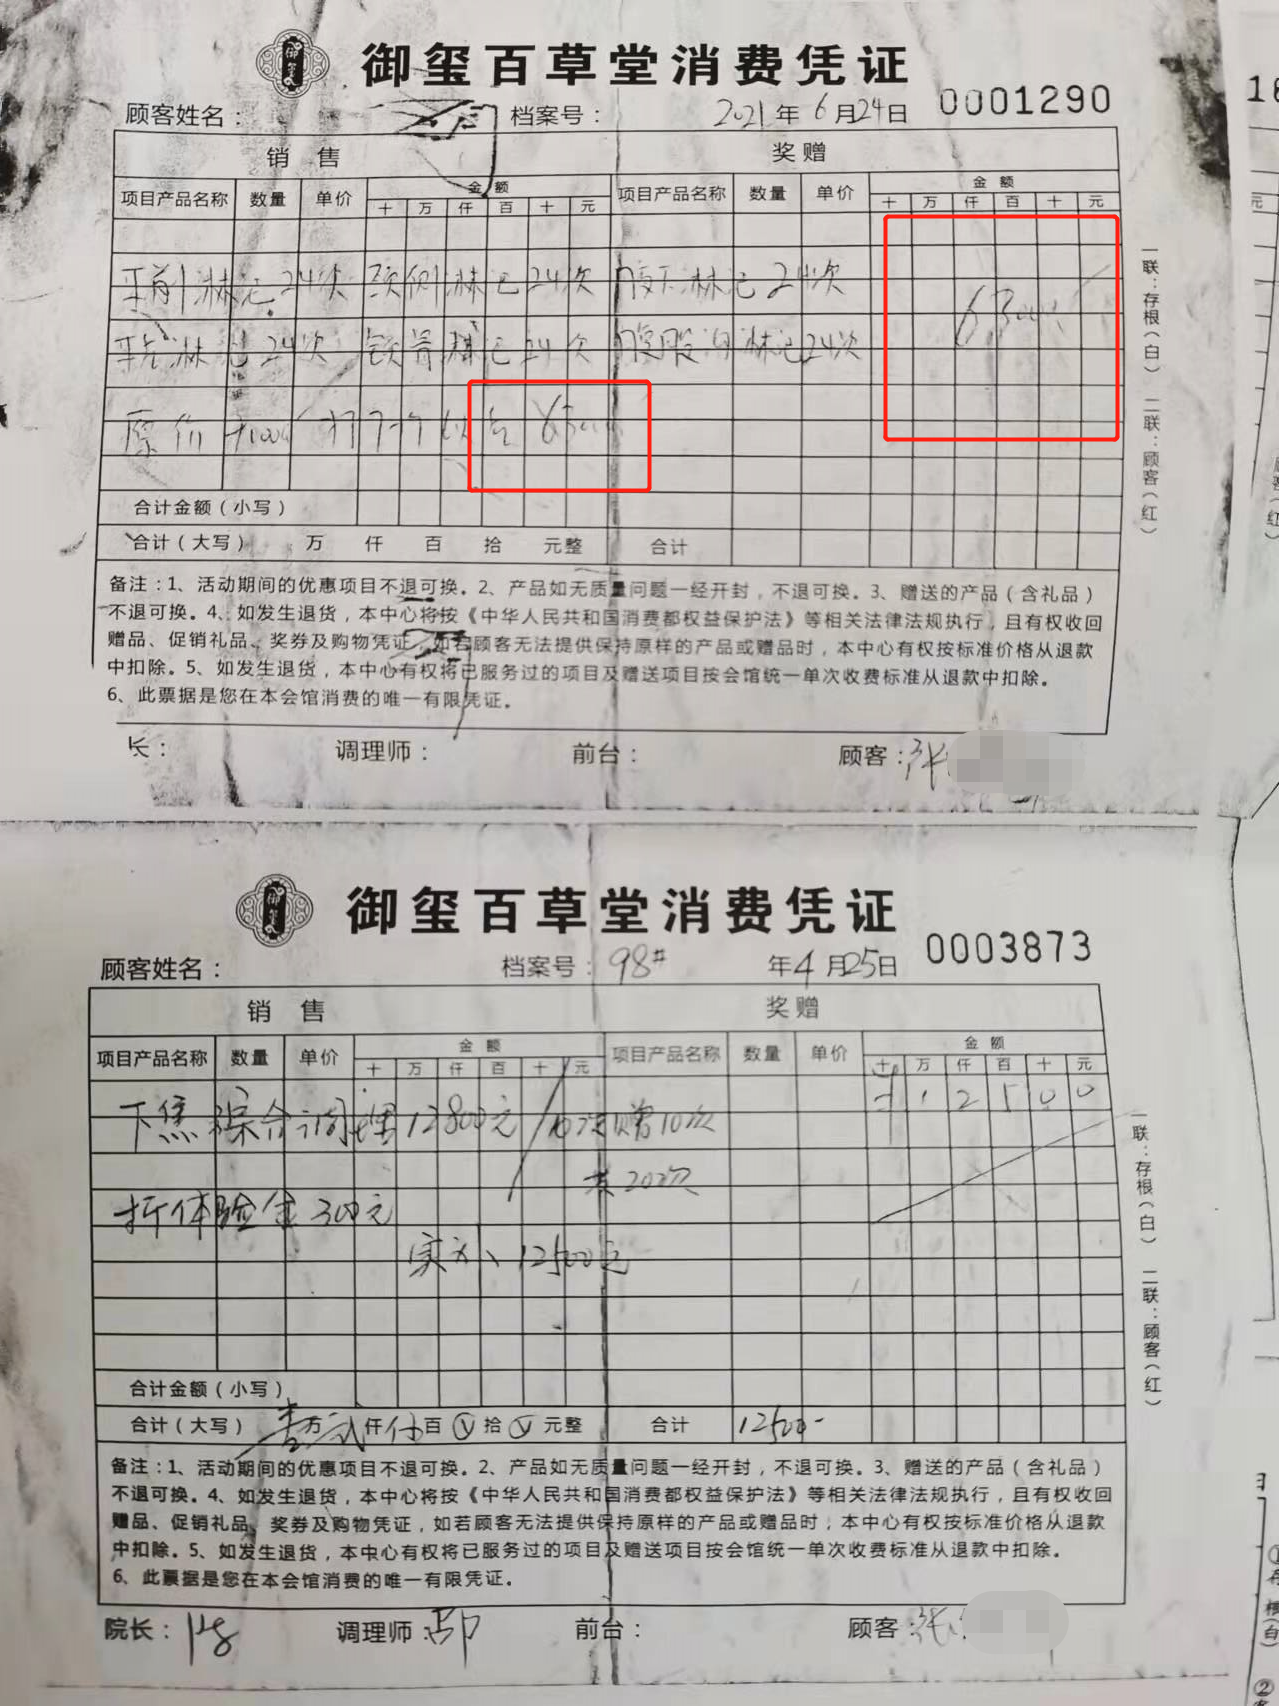 御玺
御玺百草堂消费凭证
顾客姓名： 档案号： 2021年6月24日 0001290
销 售 奖 赠
项目产品名称 数量 单价 金 额 项目产品名称 数量 单价 金 额
十 万 仟 百 十 元 十 万 仟 百 十 元
淋巴24次 颈侧淋巴24次 淋巴24次
淋巴24次 锁骨淋巴24次 腹股沟淋巴24次
原价
合计金额（小写）
合计（大写） 万 仟 百 拾 元整 合计
备注：1、活动期间的优惠项目不退可换。2、产品如无质量问题一经开封，不退可换。3、赠送的产品（含礼品）
不退可换。4、如发生退货，本中心将按《中华人民共和国消费都权益保护法》等相关法律法规执行，且有权收回
赠品、促销礼品、奖券及购物凭证，如若顾客无法提供保持原样的产品或赠品时，本中心有权按标准价格从退款
中扣除。5、如发生退货，本中心有权将已服务过的项目及赠送项目按会馆统一单次收费标准从退款中扣除。
6、此票据是您在本会馆消费的唯一有限凭证。
长： 调理师： 前台： 顾客：张
一联：存根（白） 二联：顾客（红）
御玺百草堂消费凭证
顾客姓名： 档案号：98# 年4月25日 0003873
销 售 奖 赠
项目产品名称 数量 单价 金 额 项目产品名称 数量 单价 金 额
十 万 仟 百 十 元 十 万 仟 百 十 元
下焦综合调理12800元/10次赠10次 12500
共20次
折体验金300元
实 12500元
合计金额（小写）
合计（大写） 壹万贰仟伍百 拾 元整 合计 12500-
备注：1、活动期间的优惠项目不退可换。2、产品如无质量问题一经开封，不退可换。3、赠送的产品（含礼品）
不退可换。4、如发生退货，本中心将按《中华人民共和国消费都权益保护法》等相关法律法规执行，且有权收回
赠品、促销礼品、奖券及购物凭证，如若顾客无法提供保持原样的产品或赠品时，本中心有权按标准价格从退款
中扣除。5、如发生退货，本中心有权将已服务过的项目及赠送项目按会馆统一单次收费标准从退款中扣除。
6、此票据是您在本会馆消费的唯一有限凭证。
院长： 调理师： 前台： 顾客：张
一联：存根（白） 二联：顾客（红）